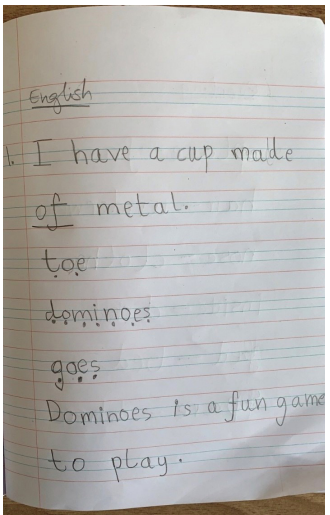 English
1. I have a cup made
of metal.
toe
dominoes
goes
Dominoes is a fun game
to play.